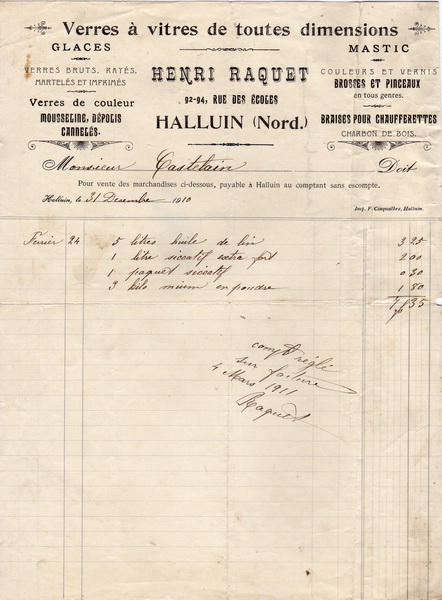 Verres à vitres de toutes dimensions
GLACES
VERRES BRUTS, RAYÉS,
MARTELÉS ET IMPRIMÉS
Verres de couleur
MOUSSELINE, DÉPOLIS
CANNELÉS.
HENRI RAQUET
92-94, RUE DES ÉCOLES
HALLUIN (Nord.)
MASTIC
COULEURS ET VERNIS
BROSSES ET PINCEAUX
en tous genres.
BRAISES POUR CHAUFFERETTES
CHARBON DE BOIS.
Monsieur Castelain Doit
Pour vente des marchandises ci-dessous, payable à Halluin au comptant sans escompte.
Halluin, le 31 Decembre 1910
Imp. F. Cinqualbre, Halluin.
Février 24 5 litres huile de lin 3 25
1 litre siccatif extra fort 2 00
1 paquet siccatif 0 30
3 kilo minium en poudre 1 80
7f 35
compt réglé
sur facture
4 Mars 1911
Raquet